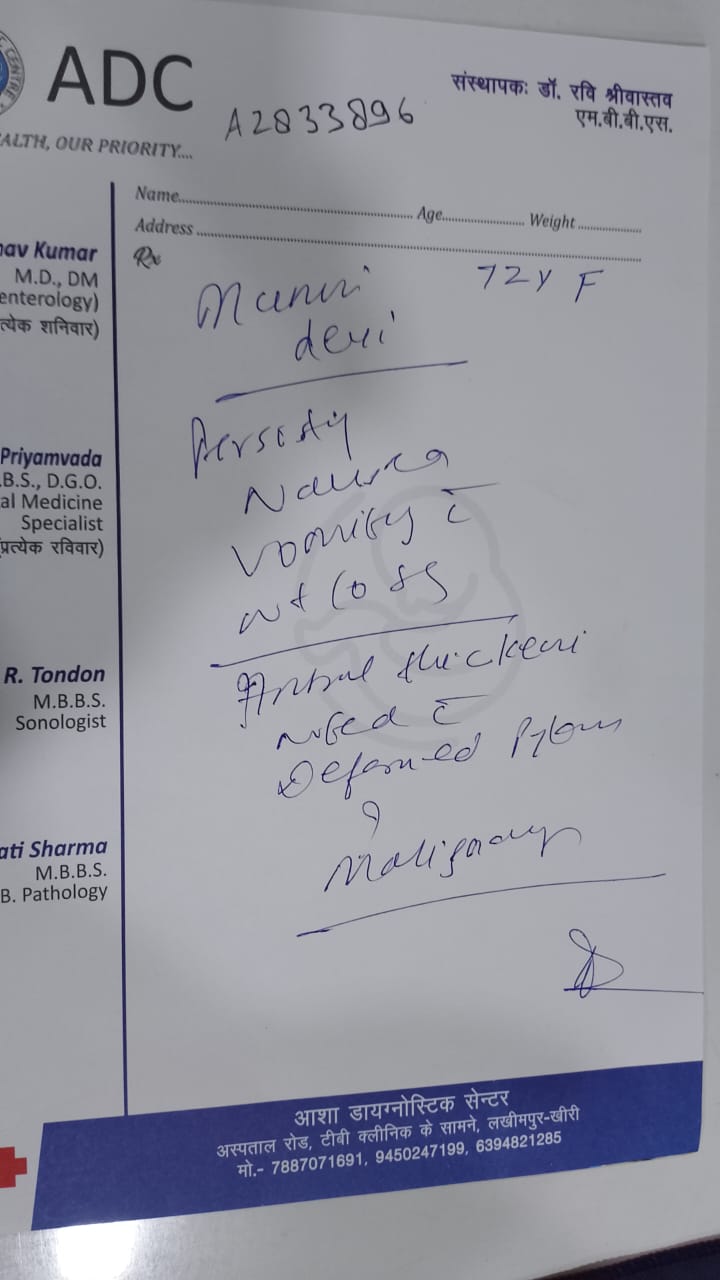 ADC
संस्थापकः डॉ. रवि श्रीवास्तव
एम.बी.बी.एस.
A2833896
ALTH, OUR PRIORITY....
Name Age Weight
Address
Rx
nav Kumar
M.D., DM
enterology)
त्येक शनिवार)
72y F
devi
Nausea
vomiting c̄
wt loss
Priyamvada
.B.S., D.G.O.
al Medicine
Specialist
प्रत्येक रविवार)
Antral thickeni
noted c̄
Deformed Pylorus
?
Malignancy
R. Tondon
M.B.B.S.
Sonologist
ati Sharma
M.B.B.S.
B. Pathology
आशा डायग्नोस्टिक सेन्टर
अस्पताल रोड, टीबी क्लीनिक के सामने, लखीमपुर-खीरी
मो.- 7887071691, 9450247199, 6394821285